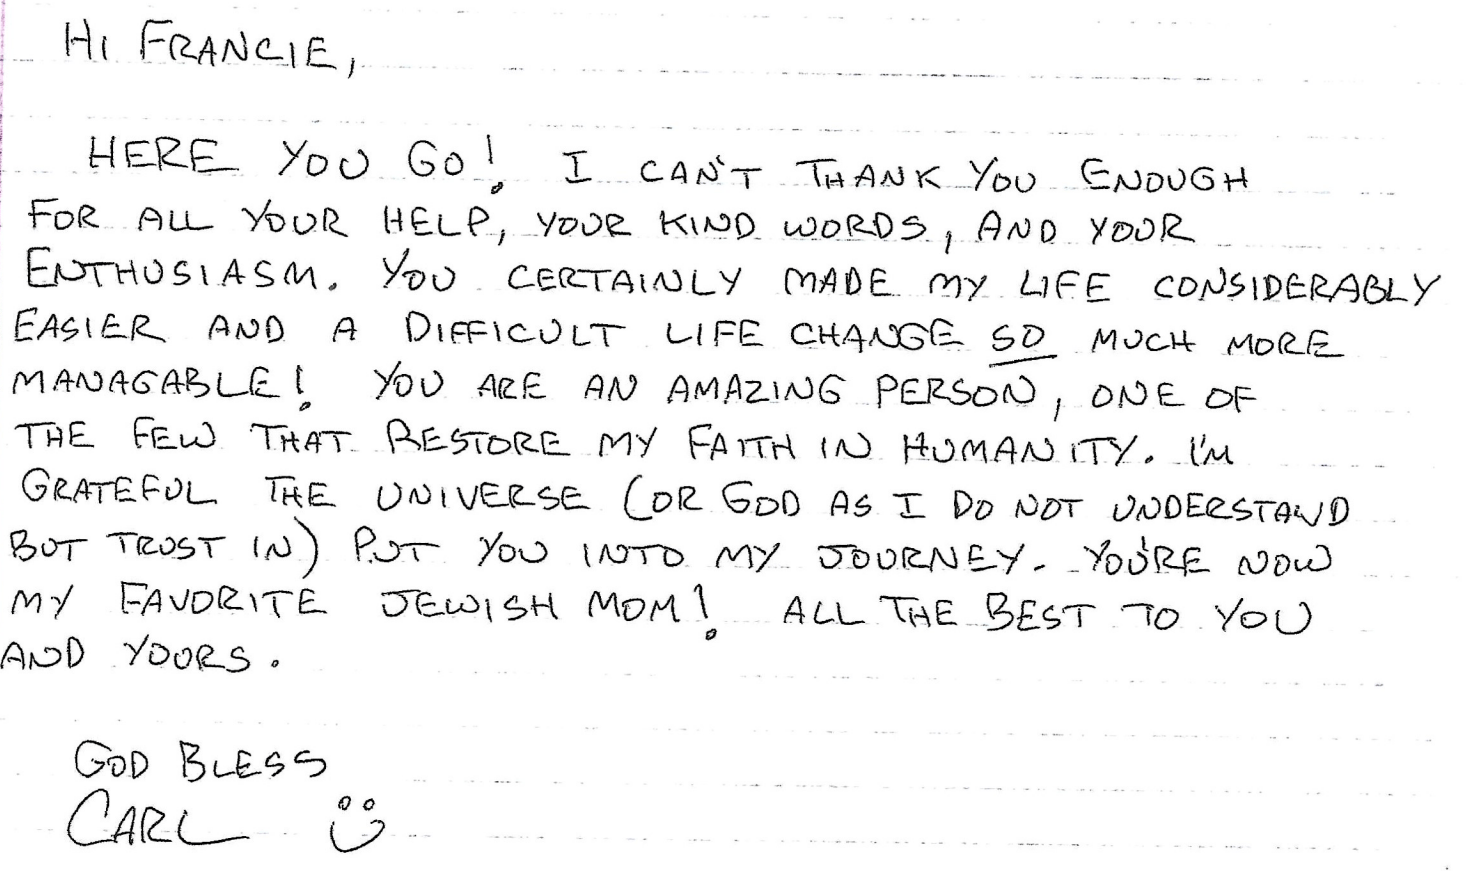 HI FRANCIE,
HERE YOU GO! I CAN'T THANK YOU ENOUGH
FOR ALL YOUR HELP, YOUR KIND WORDS, AND YOUR
ENTHUSIASM. YOU CERTAINLY MADE MY LIFE CONSIDERABLY
EASIER AND A DIFFICULT LIFE CHANGE SO MUCH MORE
MANAGABLE! YOU ARE AN AMAZING PERSON, ONE OF
THE FEW THAT RESTORE MY FAITH IN HUMANITY. I'M
GRATEFUL THE UNIVERSE (OR GOD AS I DO NOT UNDERSTAND
BUT TRUST IN) PUT YOU INTO MY JOURNEY. YOU'RE NOW
MY FAVORITE JEWISH MOM! ALL THE BEST TO YOU
AND YOURS.
GOD BLESS
CARL